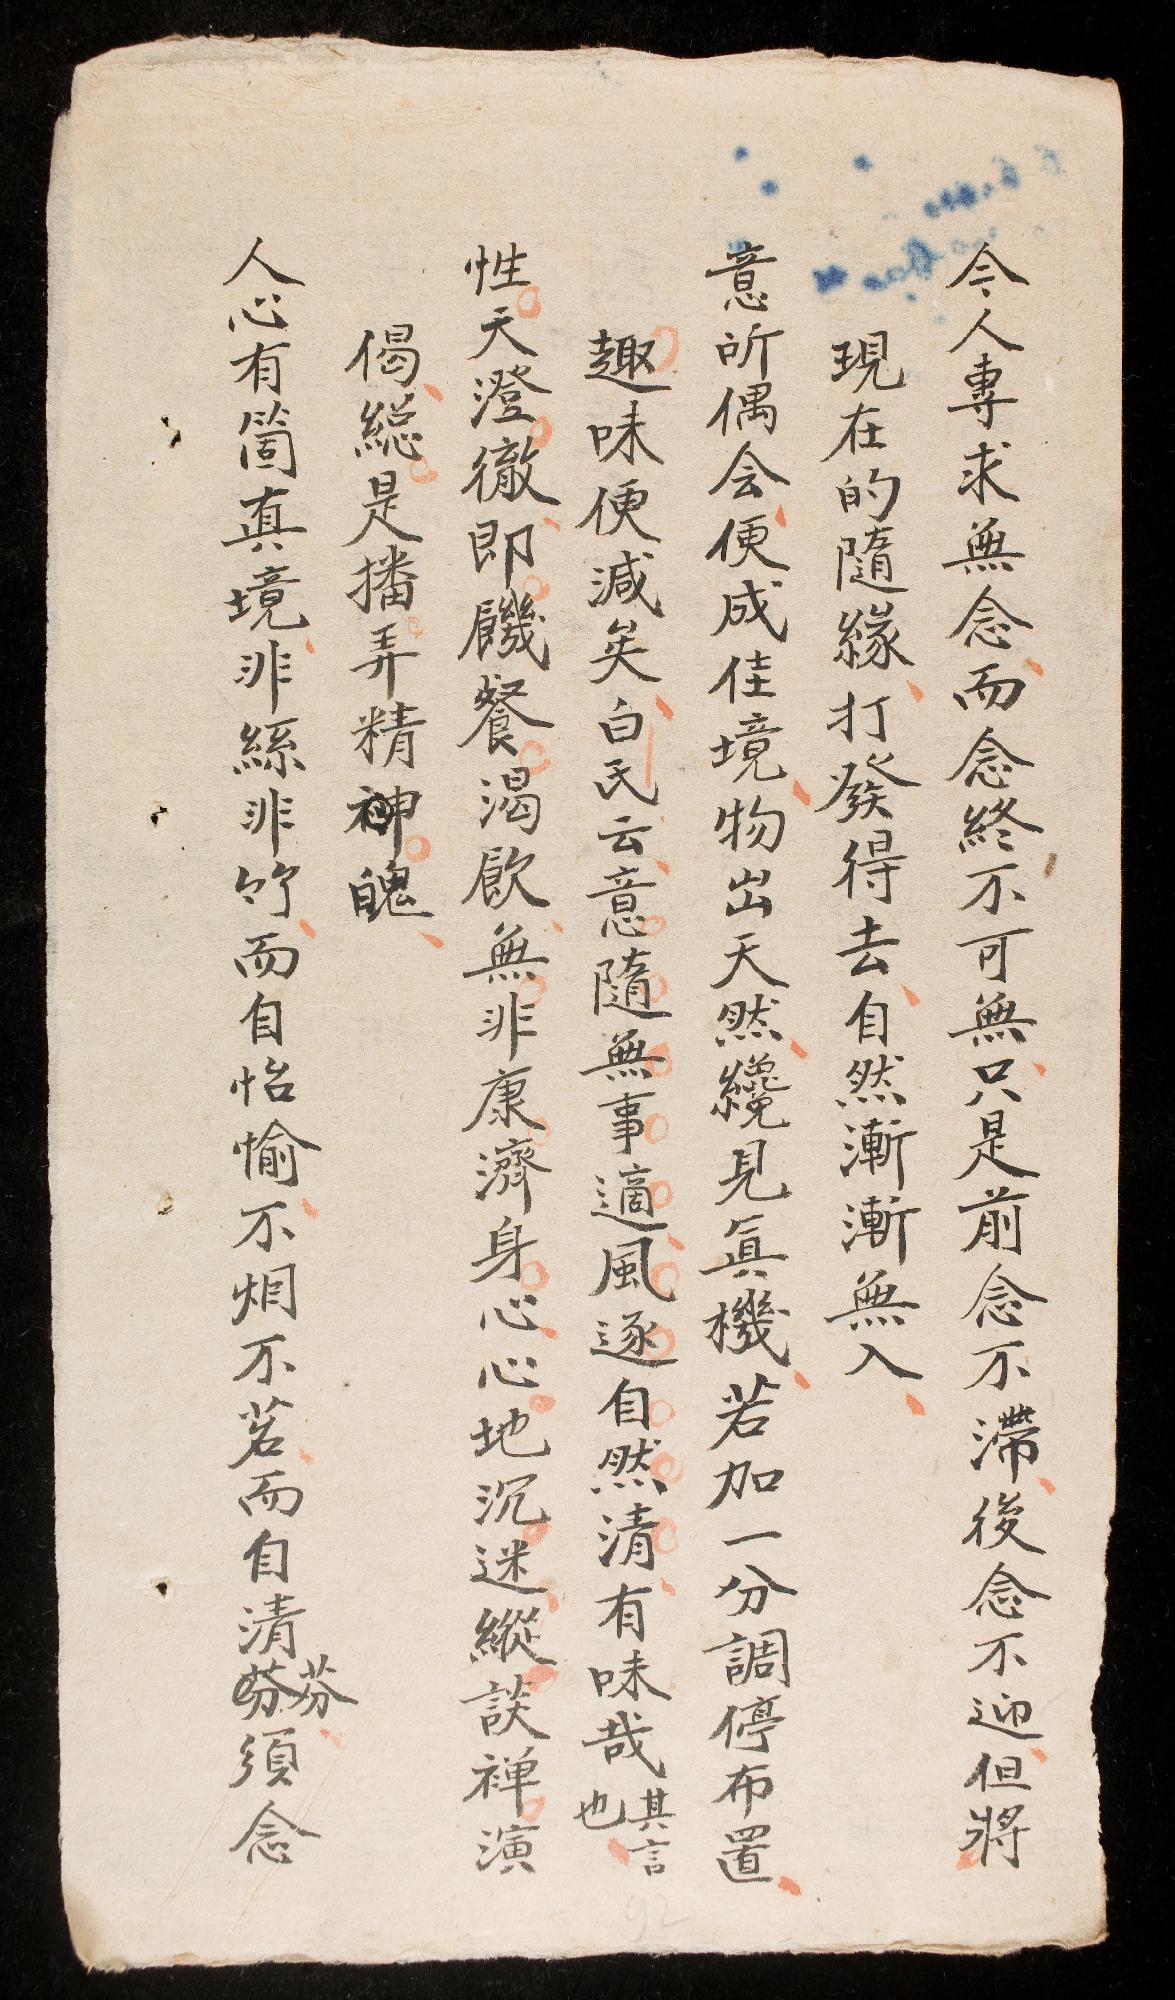 今人專求無念而念終不可無只是前念不滯後念不迎但將
現在的隨緣打發得去自然漸漸無入
意所偶会便成佳境物出天然纔見眞機若加一分調停布置
趣味便減矣白氏云意隨無事適風逐自然清有味哉其言也
性天澄徹即饑餐渴飲無非康濟身心心地沉迷縱談禅演
偈総是播弄精神魄
人心有箇真境非絲非竹而自怡愉不烟不茗而自清芬芬須念
92